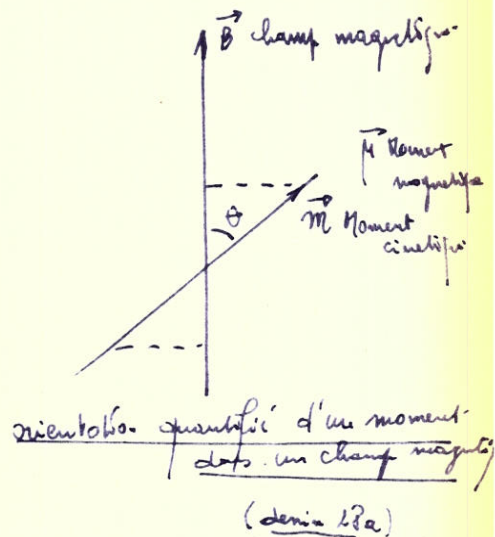 B champ magnétiq
θ
M Moment
magnetiq
m Moment
cinetiq
orientation quantifié d'un moment
dans un champ magnétiq
(dessin 28a)